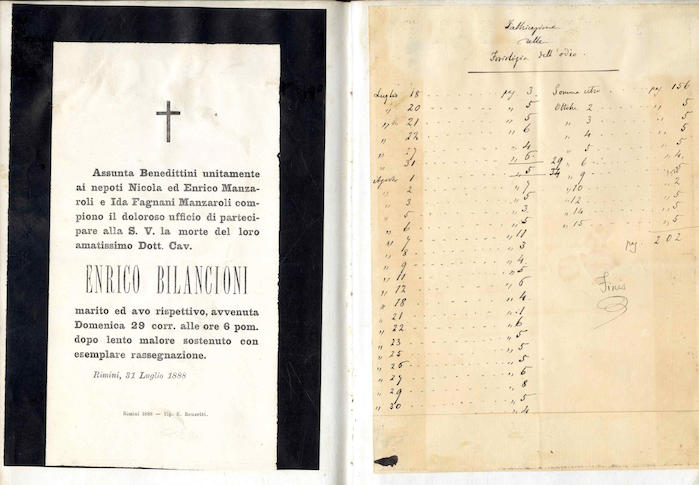 Assunta Benedittini unitamente
ai nepoti Nicola ed Enrico Manza-
roli e Ida Fagnani Manzaroli com-
piono il doloroso ufficio di parteci-
pare alla S. V. la morte del loro
amatissimo Dott. Cav.
ENRICO BILANCIONI
marito ed avo rispettivo, avvenuta
Domenica 29 corr. alle ore 6 pom.
dopo lento malore sostenuto con
esemplare rassegnazione.
Rimini, 31 Luglio 1888
Rimini 1888 — Tip. E. Renzetti.
Fabbricazione
della
Fisiologia dell'odio.
Luglio 18 pag 3
" 20 " 5
" 21 " 5
" 22 " 6
" 27 " 4
" 31 " 6
Agosto 1 " 5
" 2 " 7
" 3 " 5
" 5 " 3
" 6 " 5
" 7 " 11
" 8 " 3
" 9 " 4
" 11 " 5
" 12 " 6
" 18 " 4
" 21 " 1
" 22 " 6
" 23 " 5
" 25 " 5
" 26 " 5
" 27 " 6
" 29 " 8
" 30 " 5
" 4
Somma pag 156
Ottobre 2 " 5
" 3 " 5
" 4 " 5
" 5 " 5
29 " 6 " 4
34 " 9
" 10 " 2
" 12 " 5
" 14 " 5
" 15 " 5
pag. 202
Finis